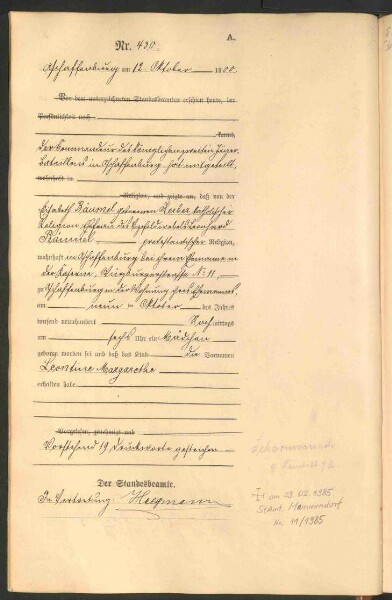 A.
Nr. 430.
Aschaffenburg am 12. Oktober 1900
Vor dem unterzeichneten Standesbeamten erschien heute, der
Persönlichkeit nach
kannt,
der Kommandeur des Königlichen zweiten Jäger
Bataillons in Aschaffenburg hat mitgeteilt,
wohnhaft in
Religion, und zeigte an, daß von der
Elisabeth Bäumel geborenen katholischer
Religion, Ehefrau des Leonhard
Bäumel protestantischer Religion,
wohnhaft in Aschaffenburg bei ihrem Ehemanne in
der Kaserne, Würzburgerstraße No 11,
zu Aschaffenburg in der Wohnung ihres Ehemannes,
am neun ten Oktober des Jahres
tausend neunhundert Nachmittags
um sechs Uhr ein Mädchen
geboren worden sei und daß das Kind die Vornamen
Leontine Margarethe
erhalten habe
Vorgelesen, genehmigt und
Vorstehend 19 Druckworte gestrichen
Der Standesbeamte.
In Vertretung:
am 23.02.1985
StAmt
Nr. 11/1985